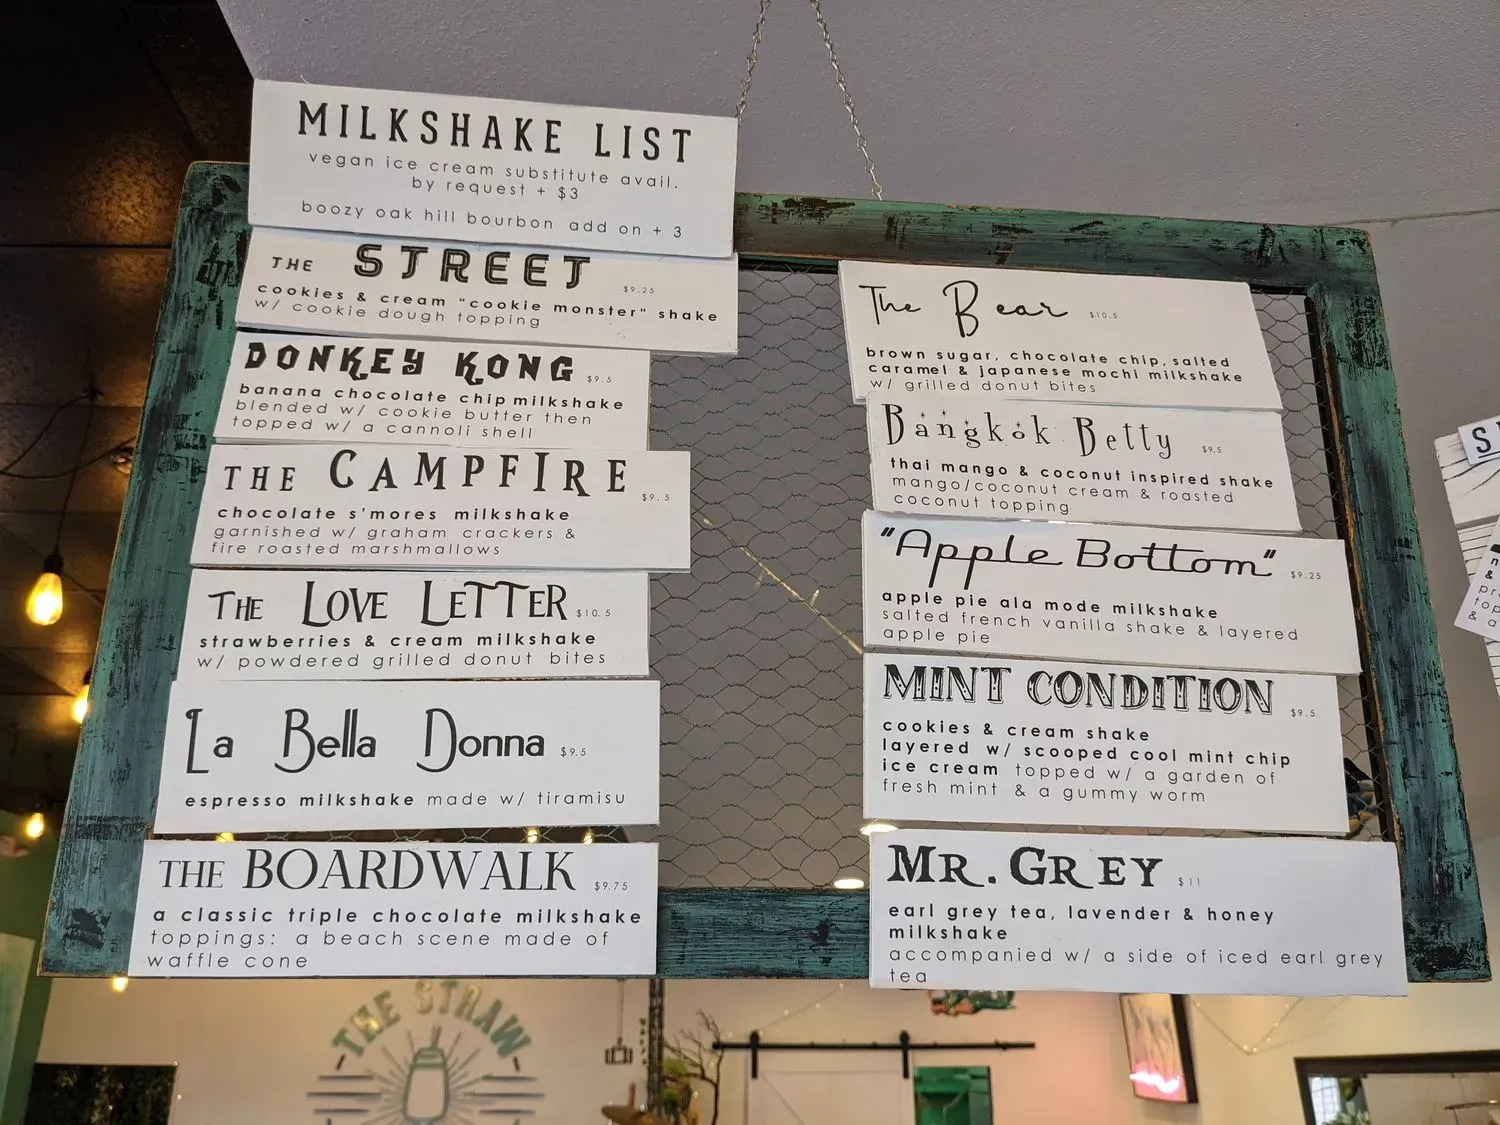 MILKSHAKE LIST
vegan ice cream substitute avail.
by request + $3
boozy oak hill bourbon add on + 3
THE STREET $9.25
cookies & cream "cookie monster" shake
w/ cookie dough topping
DONKEY KONG $9.5
banana chocolate chip milkshake
blended w/ cookie butter then
topped w/ a cannoli shell
THE CAMPFIRE $9.5
chocolate s'mores milkshake
garnished w/ graham crackers &
fire roasted marshmallows
THE LOVE LETTER $10.5
strawberries & cream milkshake
w/ powdered grilled donut bites
La Bella Donna $9.5
espresso milkshake made w/ tiramisu
THE BOARDWALK $9.75
a classic triple chocolate milkshake
toppings: a beach scene made of
waffle cone
The Bear $10.5
brown sugar, chocolate chip, salted
caramel & japanese mochi milkshake
w/ grilled donut bites
Bangkok Betty $9.5
thai mango & coconut inspired shake
mango/coconut cream & roasted
coconut topping
"Apple Bottom" $9.25
apple pie ala mode milkshake
salted french vanilla shake & layered
apple pie
MINT CONDITION $9.5
cookies & cream shake
layered w/ scooped cool mint chip
ice cream topped w/ a garden of
fresh mint & a gummy worm
MR. GREY $11
earl grey tea, lavender & honey
milkshake
accompanied w/ a side of iced earl grey
tea
THE STRAW